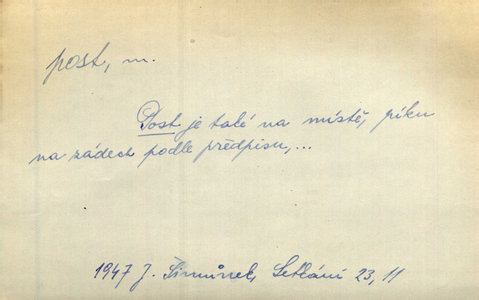 post, m.
Post je také na místě, píku
na zádech podle předpisu,...
1947 J. Šimůnek, Setkání 23, 11